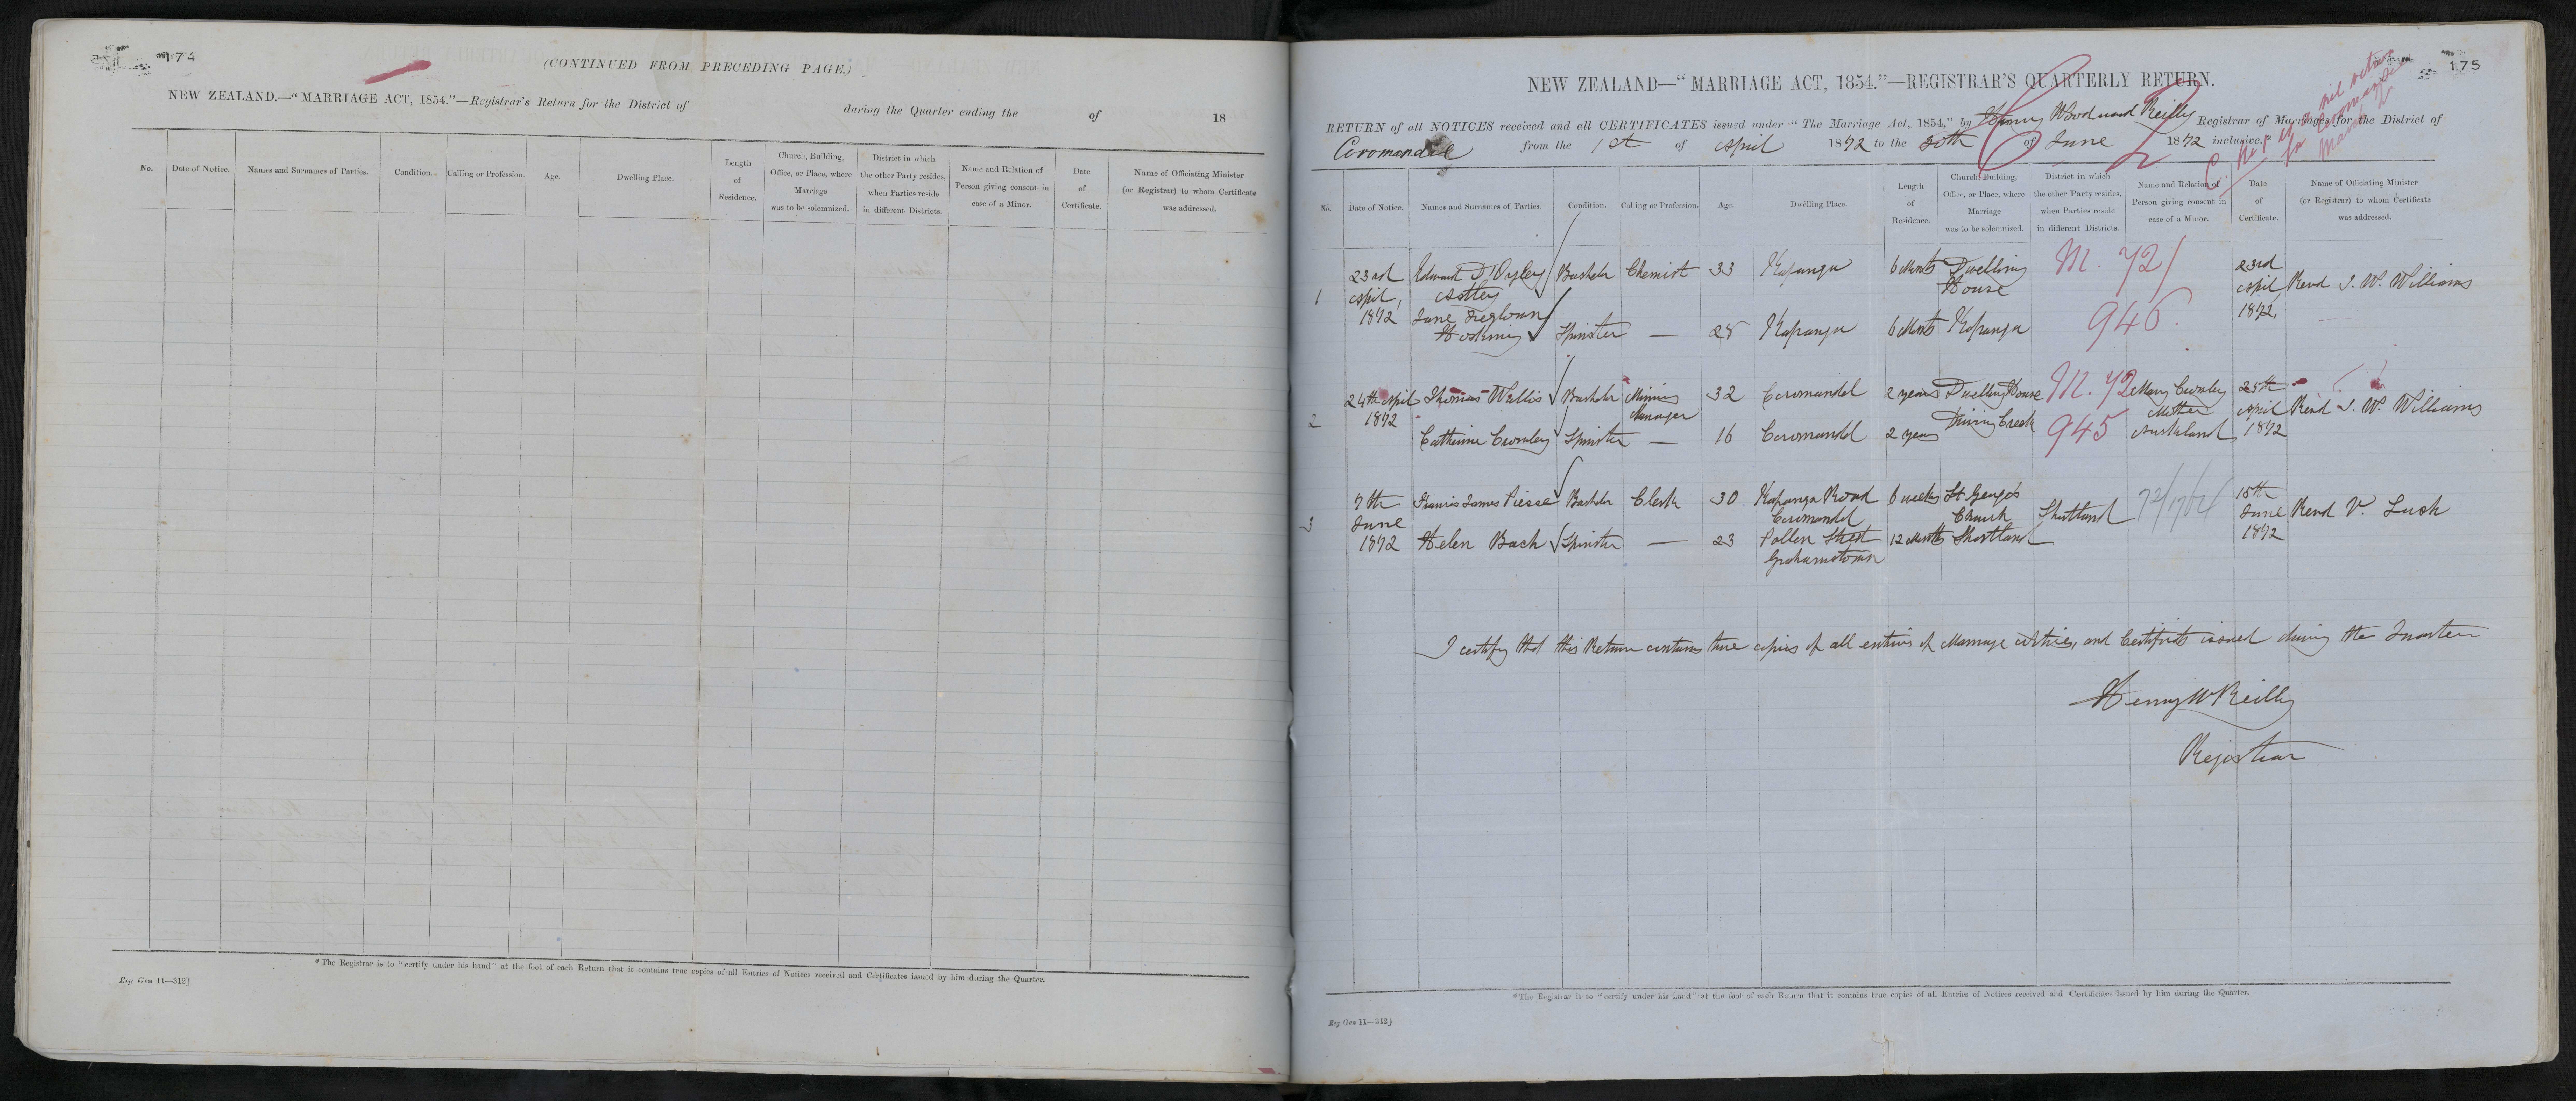 174
(CONTINUED FROM PRECEDING PAGE.)
NEW ZEALAND.—"MARRIAGE ACT, 1854."—Registrar's Return for the District of during the Quarter ending the of 18
No. Date of Notice. Names and Surnames of Parties. Condition. Calling or Profession. Age. Dwelling Place. Length of Residence. Church, Building, Office, or Place, where Marriage was to be solemnized. District in which the other Party resides, when Parties reside in different Districts. Name and Relation of Person giving consent in case of a Minor. Date of Certificate. Name of Officiating Minister (or Registrar) to whom Certificate was addressed.
*The Registrar is to "certify under his hand" at the foot of each Return that it contains true copies of all Entries of Notices received and Certificates issued by him during the Quarter.
Reg Gen 11—312]
175
NEW ZEALAND—"MARRIAGE ACT, 1854."—REGISTRAR'S QUARTERLY RETURN.
RETURN of all NOTICES received and all CERTIFICATES issued under "The Marriage Act, 1854," by Henry Woodward Reilly Registrar of Marriages for the District of
Coromandel from the 1st of April 1872 to the 30th of June 1872 inclusive.
nil return
Coromandel
No. Date of Notice. Names and Surnames of Parties. Condition. Calling or Profession. Age. Dwelling Place. Length of Residence. Church, Building, Office, or Place, where Marriage was to be solemnized. District in which the other Party resides, when Parties reside in different Districts. Name and Relation of Person giving consent in case of a Minor. Date of Certificate. Name of Officiating Minister (or Registrar) to whom Certificate was addressed.
23rd Edward D'Oyley Bachelor Chemist 33 Kapanga 6 Months Dwelling M. 72/ 23rd
1 April, Astley House April Revd J. W. Williams
1872 Jane 1872,
Hosking Spinster — 28 Kapanga 6 Months Kapanga 946.
24th April Thomas Wallis Bachelor Mining 32 Coromandel 2 years Dwelling House M. 72 Mary Crowley 25th
2 1872 Manager Mother April Revd J. W. Williams
Catherine Crowley Spinster — 16 Coromandel 2 years Driving Creek 945 Auckland 1872
7th Francis James Piesse Bachelor Clerk 30 Kapanga Road 6 weeks St George's 72/1764 15th
3 June Coromandel Church Shortland June Revd V. Lush
1872 Helen Bach Spinster — 23 Pollen Street 12 Months Shortland 1872
Grahamstown
I certify that this Return contains true copies of all entries of Marriage notices, and Certificates issued during the Quarter
Henry W Reilly
Registrar
*The Registrar is to "certify under his hand" at the foot of each Return that it contains true copies of all Entries of Notices received and Certificates issued by him during the Quarter.
Reg Gen 11—312]